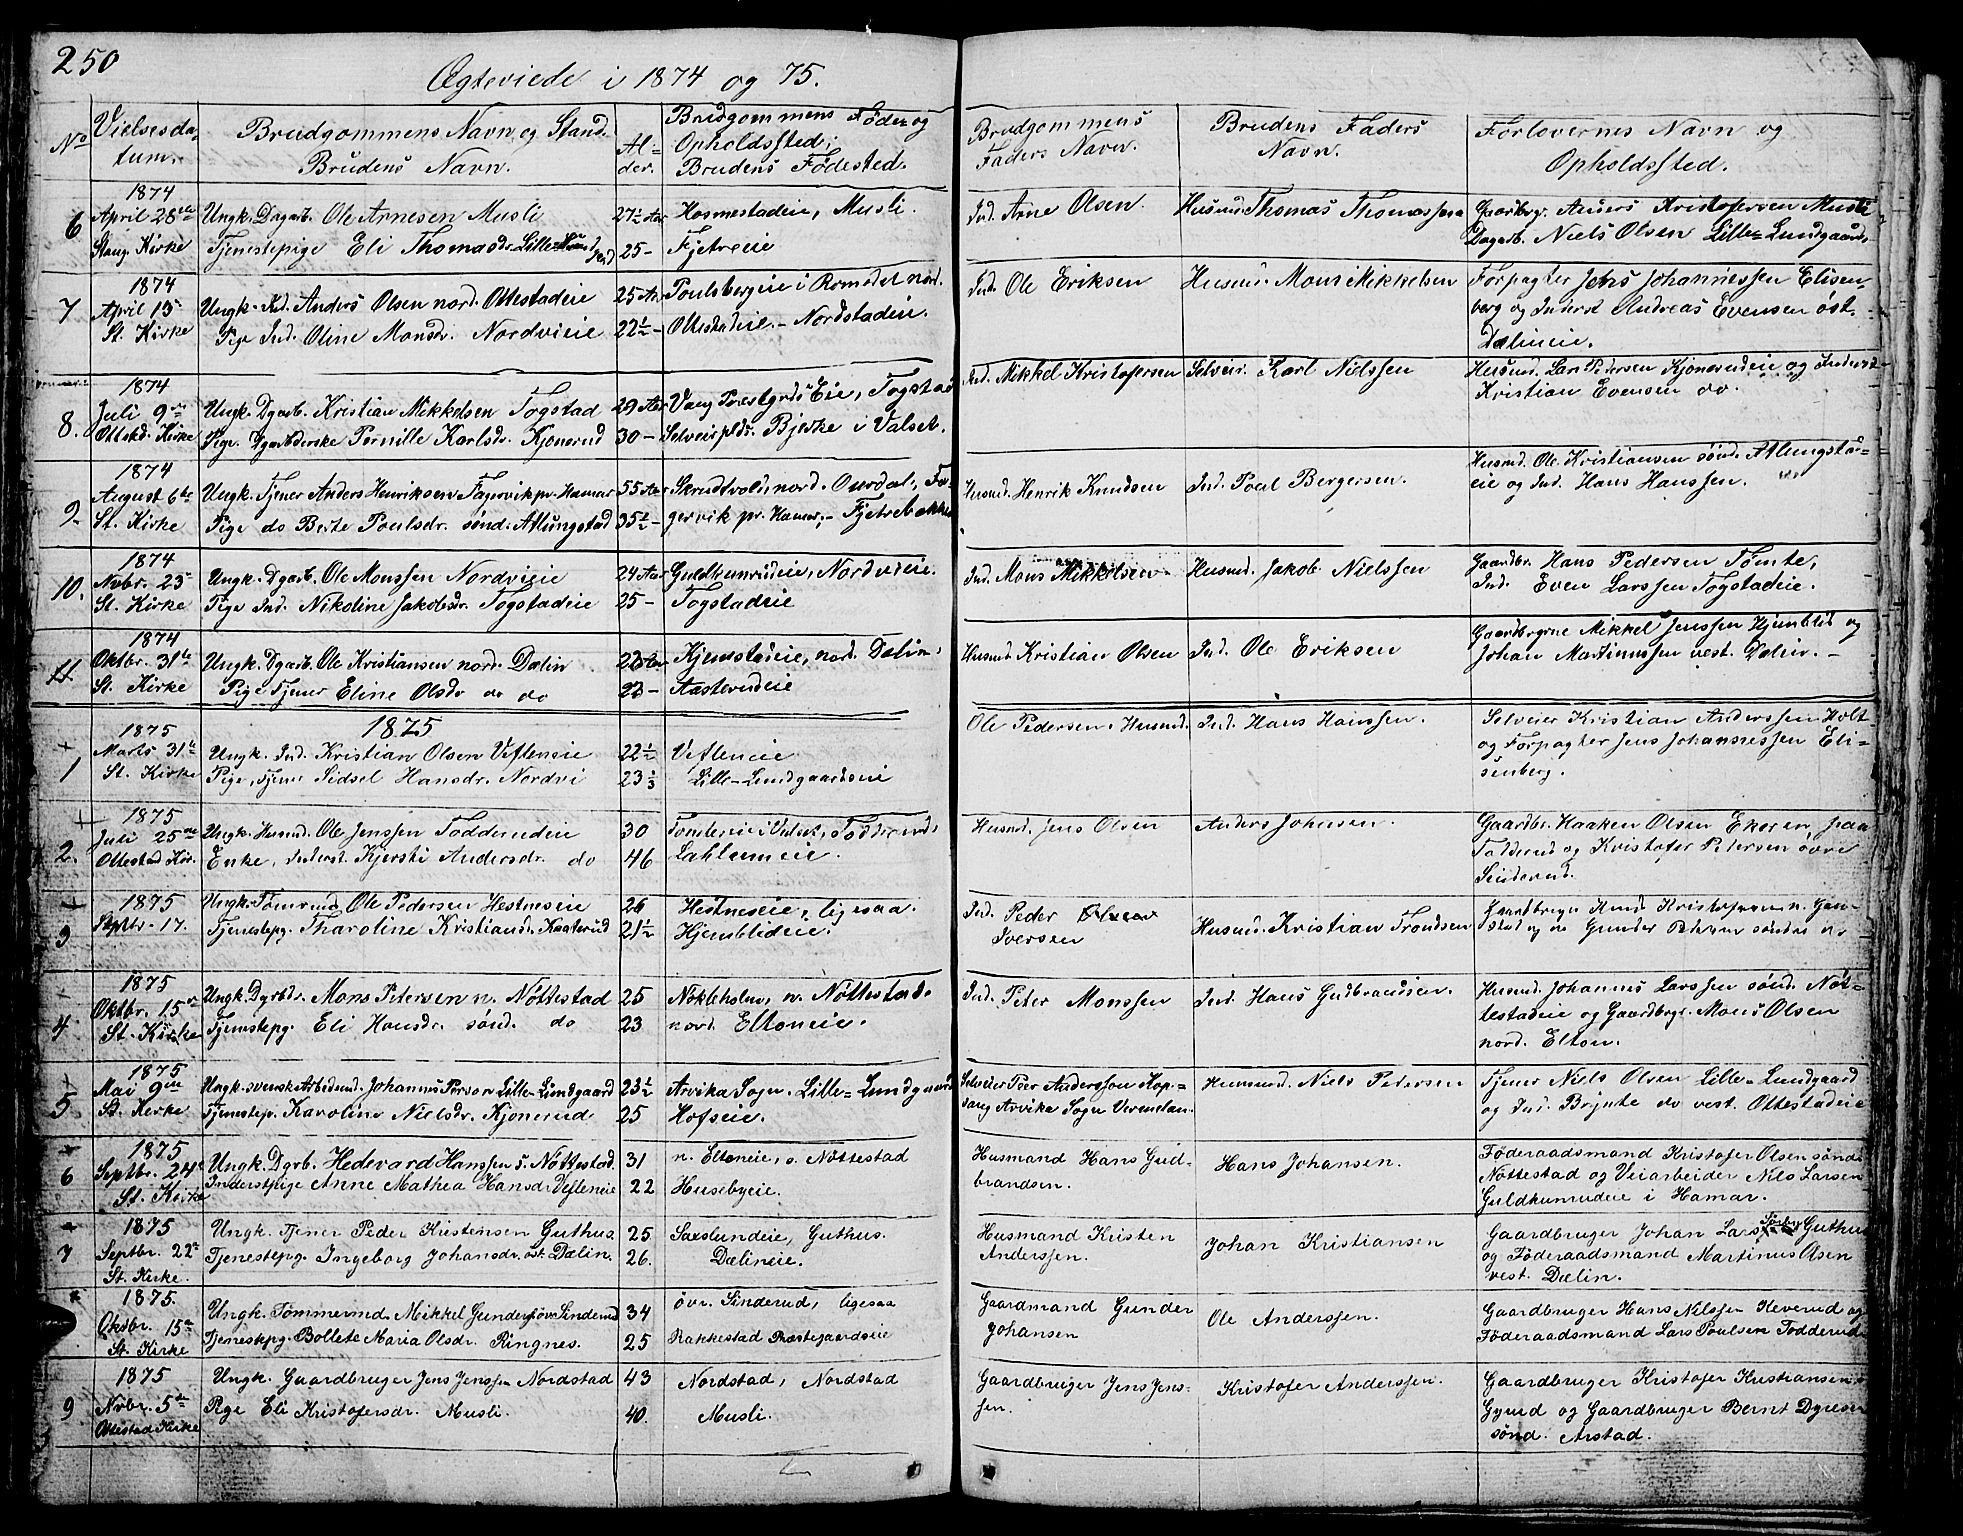 250
Ægteviede i 1874 og 75.
No
Vielsesda-
tum.
Brudgommens Navn og Stand.
Brudens Navn.
Al-
der.
Brudgommens Føde- og
Opholdssted;
Brudens Fødested.
Brudgommens
Faders Navn.
Brudens Faders
Navn.
Forlovernes Navn og
Opholdssted.
6
1874
April 28de
Stang. Kirke
Ungk. Dagarb. Ole Arnesen Musli
Tjenestepige Eli Thomasdr. Lille-
27½ Aar
25 -
Kosmestadeie, Musli.
Fjetreeie
Ind. Arne Olsen.
Husmd. Thomas Thomassen
Gaardbrgr. Anders Kristofersen Musli
Dagarb. Niels Olsen Lille-Lundgaard.
7
1874
April 13
St. Kirke
Ungk. Ind. Anders Olsen nord. Ottestadeie
Pige Ind. Oline Monsdr. Nordvieie
25 Aar
22½ -
Poulsbergeie i Romedal nord.
Ottestadeie. - Nordstadeie.
Ind. Ole Eriksen
Husmd. Mons Mikkelsen
Forpagter Jens Johannessen Elisen-
berg og Inderst Andreas Evensen øst.
Dælineie.
8.
1874
Juli 9de
Ottestd. Kirke
Ungk. Dgarb. Kristian Mikkelsen Togstad
Pige. Dgarbderske Pernille Karlsdr. Kjonerud
29 Aar
30 -
Vang Præstgrds Eie, Togstad
Selveirplds. Bjerke i Valset.
Ind. Mikkel Kristofersen
Selveir. Karl Nielssen
Husmd. Lars Pedersen Kjonerudeie og Inderst
Kristian Evensen do.
9.
1874
August 6te
St. Kirke
Ungk. Tjener Anders Henriksen Fagervik pr. Hamar
Pige do Berte Poulsdr. sønd. Atlungstad
55 Aar
35½ -
Skrudtvold, nord. Ourdal, Fa-
gervik pr. Hamar; - Fjetrebakken
Husmd. Henrik Knudsen
Ind. Poul Bergersen.
Husmd. Ole Kristiansen sønd. Atlungsta-
eie og Ind. Hans Hanssen.
10.
1874
Novbr. 23
St. Kirke
Ungk. Dgarb. Ole Monssen Nordvieie
Pige Ind. Nikoline Jakobsdr. Togstadeie
24 Aar
25 -
Guldkunrudeie, Nordvieie.
Togstadeie
Ind. Mons Mikkelsen
Husmd. Jakob Nielssen
Gaardbr. Hans Pedersen Tømte,
Ind. Even Larssen Togstadeie.
11.
1874
Oktbr. 31te
St. Kirke
Ungk. Dgarb. Ole Kristiansen nord. Dælin
Pige Tjener Eline Olsdr do do
Kjemstadeie, nord. Dælin.
Aasterudeie
Husmd. Kristian Olsen
Ind. Ole Eriksen
Gaardbrgrne Mikkel Jenssen Hjemblid og
Johan Martinussen vest. Dælin. -
1875
+
1
1875
Marts 31te
St. Kirke
Ungk. Ind. Kristian Olsen Vefleneie
Pige, Tjener Sidsel Hansdr. Nordvi
22½
23⅓
Vefleneie
Lille-Lundgaardseie
Ole Pedersen, Husmd.
Ind. Hans Hanssen.
Selveier Kristian Anderssen Holt
og Forpagter Jens Johannessen Eli-
senberg.
+
2.
1875
Juli 25de
Ottestad Kir.
Ungk. Husmd. Ole Jenssen Todderudeie
Enke, Inderst. Kjersti Andersdr. do
30
46
Tomtereie i Valset, Todderud.
Lahlumeie.
Husmd. Jens Olsen
Anders Johnsen.
Gaardbr. Haaken Olsen Ekeren paa
Todderud og Kristofer Petersen øvre
Sinderud.
+
3
1875
Septbr. 17.
Ungk. Tømrmd Ole Pedersen Hestneseie
Tjenestepg. Tharoline Kristiansd. Kaaterud
26
21½
Hestneseie, ligesaa.
Hjemblideie.
Ind. Peder
Iversen
Husmd. Kristian Trondsen
Gaardbruger Knud Kristofersen n. Gau-
stad og do Gunder Petersen søndre do
4.
1875
Oktbr. 15de
St. Kirke
Ungk. Dgrbdr. Mons Petersen n. Nøttestad
Tjenstepg. Eli Hansdr. sønd. do
25
23
Nokleholm, n. Nøttestad.
nord. Eltoneie.
Ind. Peter Monssen
Ind. Hans Gudbrandsen.
Husmd. Johannes Larssen sønd. Nøt-
testadeie og Gaardbrgr. Mons Olsen
nord. Elton.
+
5
1875
Mai 9de
St. Kirke
Ungk. svensk Arbeidsmd. Johannes Person Lille-Lundgaard
Tjenestep. Karoline Nielsdr. Kjonerud
23½
25
Arvika Sogn. Lille-Lundgaard
Hofseie.
Selveier Peer Andersson Kop-
sang Arvika Sogn Vermelan.
Husmd. Niels Pedersen
Tjener Niels Olsen Lille-Lundgaard
og Ind. Brynte do vest. Ottestadeie
+
6
1875
Septbr. 24de
St. Kirke
Ungk. Dgrb. Hedevard Hanssen s. Nøttestad.
Inderstpige Anne Mathea Hansdr. Vefleneie
31
22
n. Eltoneie, s. Nøttestad
Husebyeie.
Husmand Hans Gud-
brandsen.
Hans Johansen.
Føderaadsmand Kristofer Olsen søndr
Nøttestad og Veiarbeider Nils Larsen
Guldkunrudeie i Hamar.
+
7
1875
Septbr. 22de
St. Kirke.
Ungk. Tjener Peder Kristensen Guthus.
Tjenestepg. Ingeborg Johansdr. øst. Dælin.
25
26.
Saxlundeie, Guthus.
Dælineie.
Husmand Kristen
Anderssen.
Johan Kristiansen
Gaardbruger Johan Lars Guthus
og Føderaadsmand Martinus Olsen
vest. Dælin.
+
1875.
Oktbr. 15de
St. Kirke
Ungk. Tømmermd. Mikkel Gunders. øvr. Sinderud
Tjenestepg. Bollete Maria Olsdr. Ringnes.
34
25
øvr. Sinderud, ligesaa
Rakkestad Præstegaardseie
Gaardmand Gunder
Johansen
Ole Anderssen.
Gaardbruger Hans Nilssen Keverud og
Føderaadsmand Lars Poulsen Todderud.
9
1875
Novbr. 5te
Ottestad Kirke
Ungk. Gaardbruger Jens Jenssen Nordstad
Pige Eli Kristofersdr. Musli.
43
40.
Nordstad, Nordstad
Musli.
Gaardbruger Jens Jens-
sen.
Kristofer Anderssen.
Gaardbruger Kristofer Kristiansen
Gyrud og Gaardbruger Bernt Dyresen
sønd. Arstad.